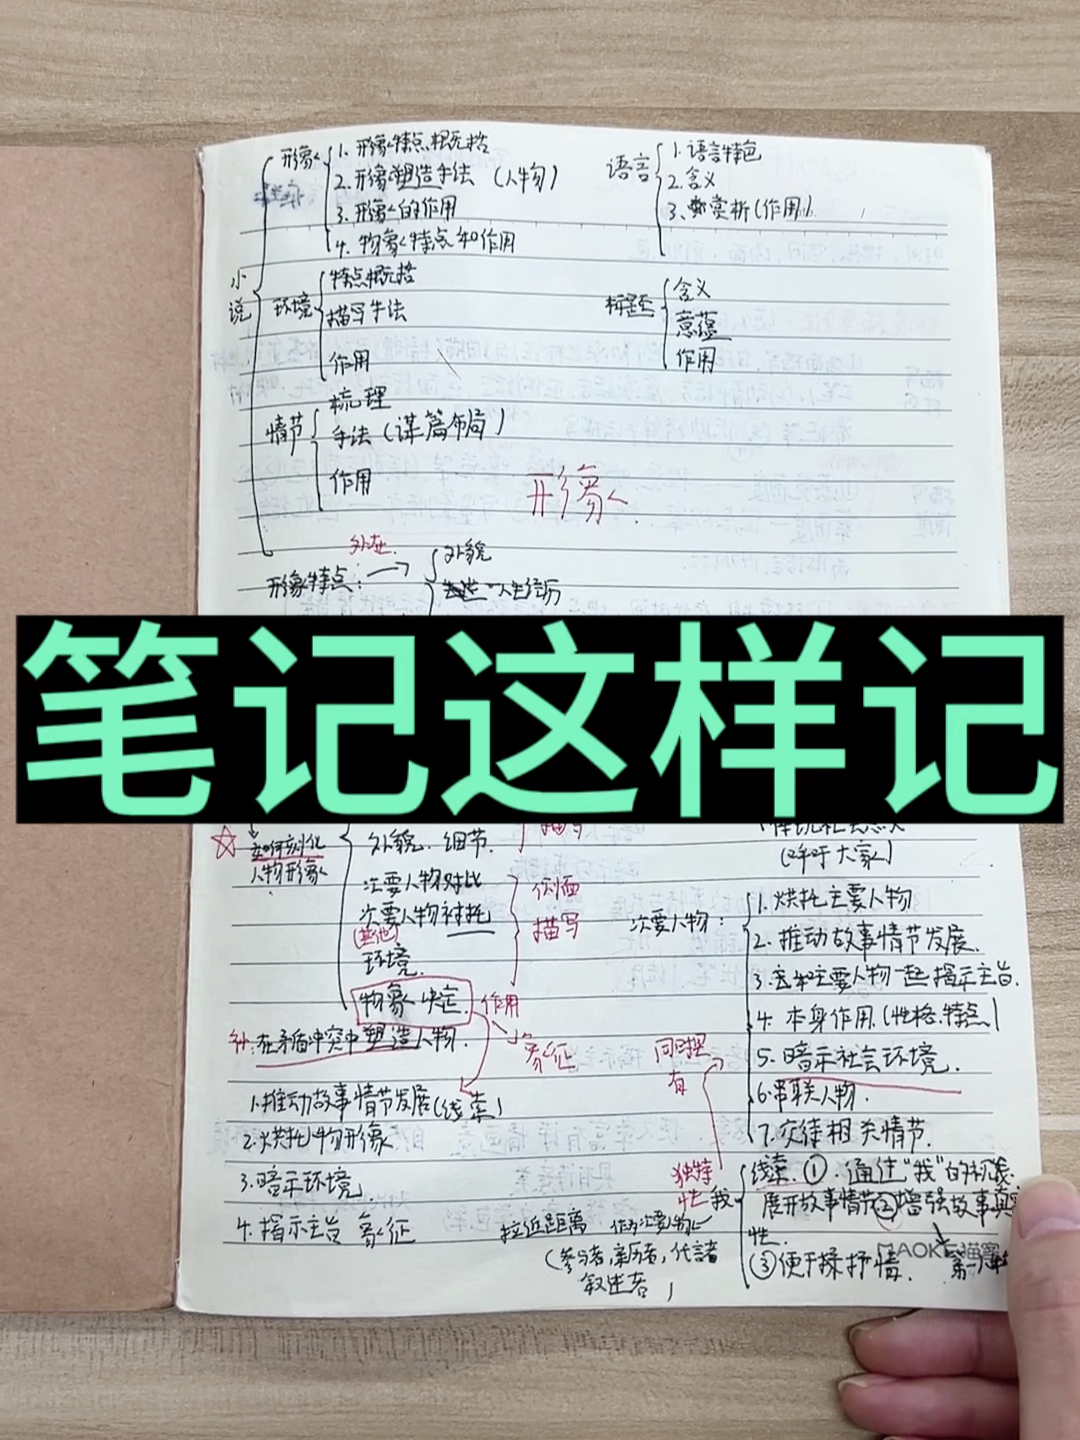 形象
1. 形象特点概括
2. 形象塑造手法 (人物)
3. 形象的作用
4. 物象特点和作用
语言
1. 语言特色
2. 含义
3. 赏析(作用)
小说
环境
特点概括
描写手法
作用
标题
含义
意蕴
作用
情节
梳理
手法(谋篇布局)
作用
形象
外在
形象特点:
外貌
人生经历
笔记这样记
如何刻化
人物形象
外貌. 细节.
描写
次要人物对比
次要人物衬托
(其他)
环境.
物象
侧面
描写
作用
象征
补:在矛盾冲突中塑造人物.
1.推动故事情节发展(线索)
2.烘托人物形象
3.暗示环境
4.揭示主旨 象征
(呼吁大家)
次要人物:
1.烘托主要人物
2.推动故事情节发展.
3.去和主要人物一起揭示主旨.
4. 本身作用.(性格.特点)
5. 暗示社会环境.
6.串联人物.
7.交待相关情节.
同理
有
独特
性
我
线索.①.通过"我"的
展开故事情节②增强故事真实
性.
③便于揉抒情.
拉近距离 作为次要人物
(参与者,亲历者,
叙述者)
MAOKE猫客